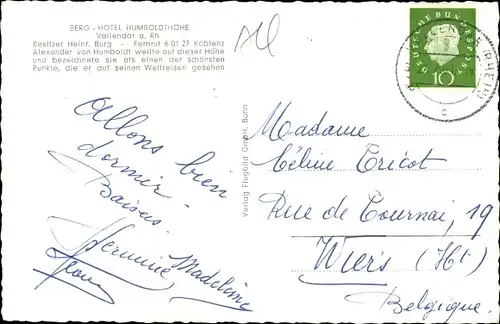 BERG - HOTEL HUMBOLDTHÖHE
Vallendar a. Rh
Besitzer Heinr. Burg - Fernruf 6 01 27 Koblenz
Alexander von Humboldt weilte auf dieser Höhe
und bezeichnete sie als einen der schönsten
Punkte, die er auf seinen Weltreisen gesehen
DEUTSCHE BUNDESPOST
10
Verlag Flugbild GmbH, Bonn
Allons bien
dormir -
Baisers.
Hermine Madeleine
Madame
Céline Tricot
Rue de Tournai, 19
Wiers (Ht)
Belgique.